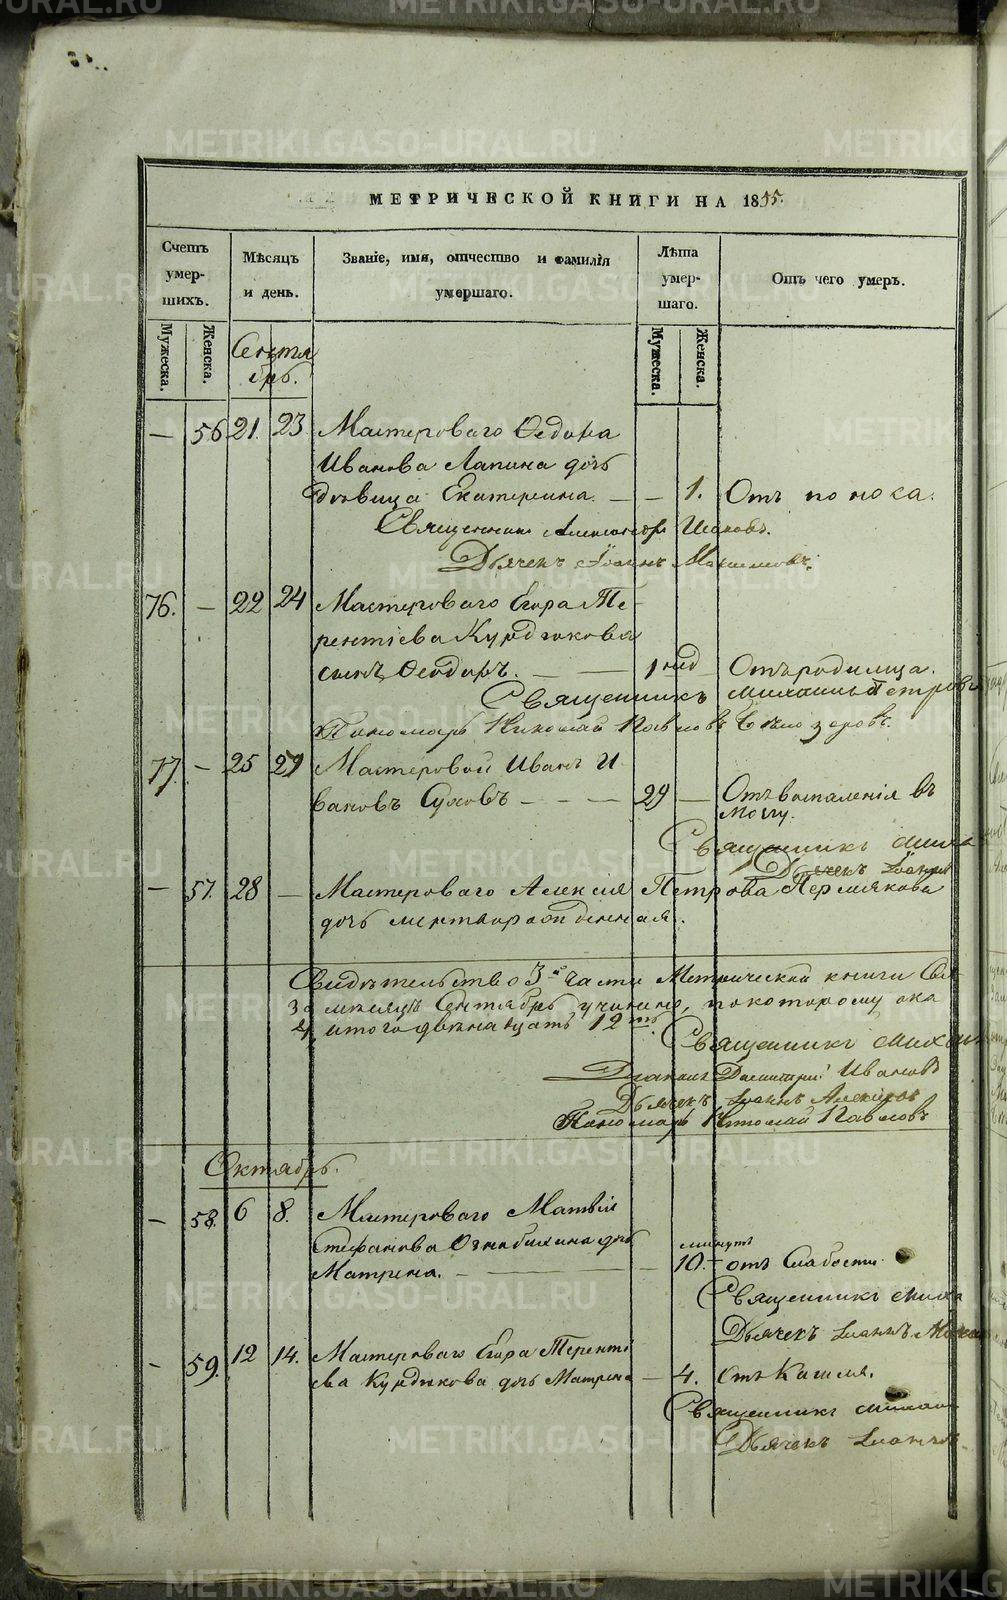 МЕТРИЧЕСКОЙ КНИГИ НА 1855.
Счетъ умер-шихъ.
Мѣсяцъ и день.
Званіе, имя, отчество и фамилія умершаго.
Лѣта умер-шаго.
Отъ чего умеръ.
Мужеска. Женска.
Мужеска. Женска.
Сентя
брь.
— 56 21. 23 Мастероваго Ѳедора
Иванова Лапина дочь
дѣвица Екатерина. — — 1. Отъ поноса.
Священникъ Александръ
Дьячекъ Іоаннъ
76. — 22 24 Мастероваго Егора Те-
рентіева Курдюкова
сынъ Ѳеодоръ. — 1 нед Отъ родимца.
Священникъ Михаилъ Петровъ
Пономарь Николай Павловъ Бѣлозеровъ.
77. — 25 27 Мастеровой Иванъ И
вановъ Суховъ — — — 29 — Отъ воспаленія въ
мозгу.
Священникъ Миха
Дьячекъ Іоаннъ
— 57. 28 — Мастероваго Алексія Петрова Пермякова
дочь мертворожденная.
Свидѣтельство 3й части Метрической книги
за мѣсяцъ Сентябрь учинено, по которому ока
итого двѣнадцать 12ть.
Священникъ Миха
Діаконъ Димитрій Ивановъ
Дьячекъ Іоаннъ
Пономарь Николай Павловъ
Октябрь.
— 58. 6 8. Мастероваго Матвія
Стефанова дочь
минутъ
Матрена. — — 10. — отъ Слабости.
Священникъ Миха
Дьячекъ Іоаннъ
— 59. 12 14. Мастероваго Егора Теренті
ева Курдюкова дочь Матрена — 4. Отъ Кашля.
Священникъ Михаи
Дьячекъ Іоаннъ
METRIKI.GASO-URAL.RU